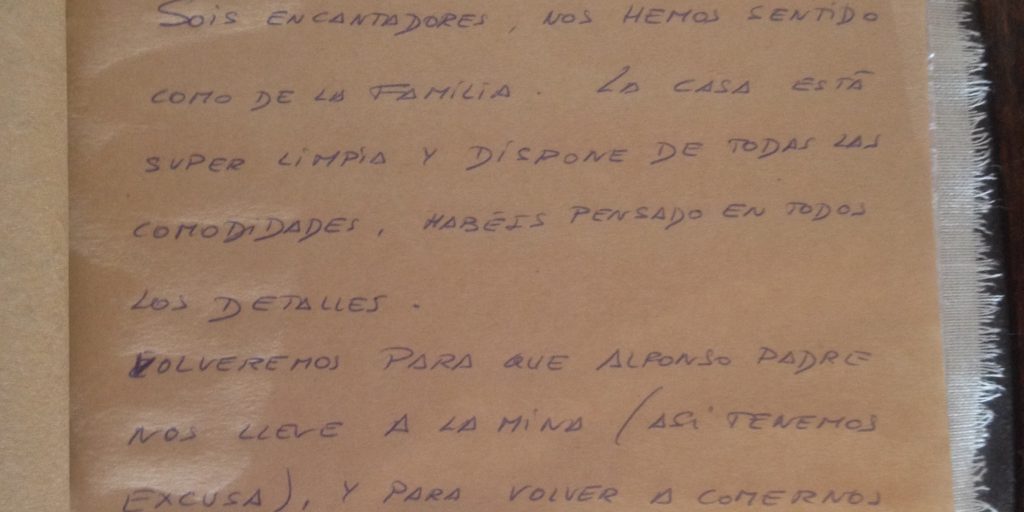 SOIS ENCANTADORES, NOS HEMOS SENTIDO
COMO DE LA FAMILIA. LA CASA ESTÁ
SUPER LIMPIA Y DISPONE DE TODAS LAS
COMODIDADES, HABÉIS PENSADO EN TODOS
LOS DETALLES.
VOLVEREMOS PARA QUE ALFONSO PADRE
NOS LLEVE A LA MINA (ASÍ TENEMOS
EXCUSA), Y PARA VOLVER A COMERNOS